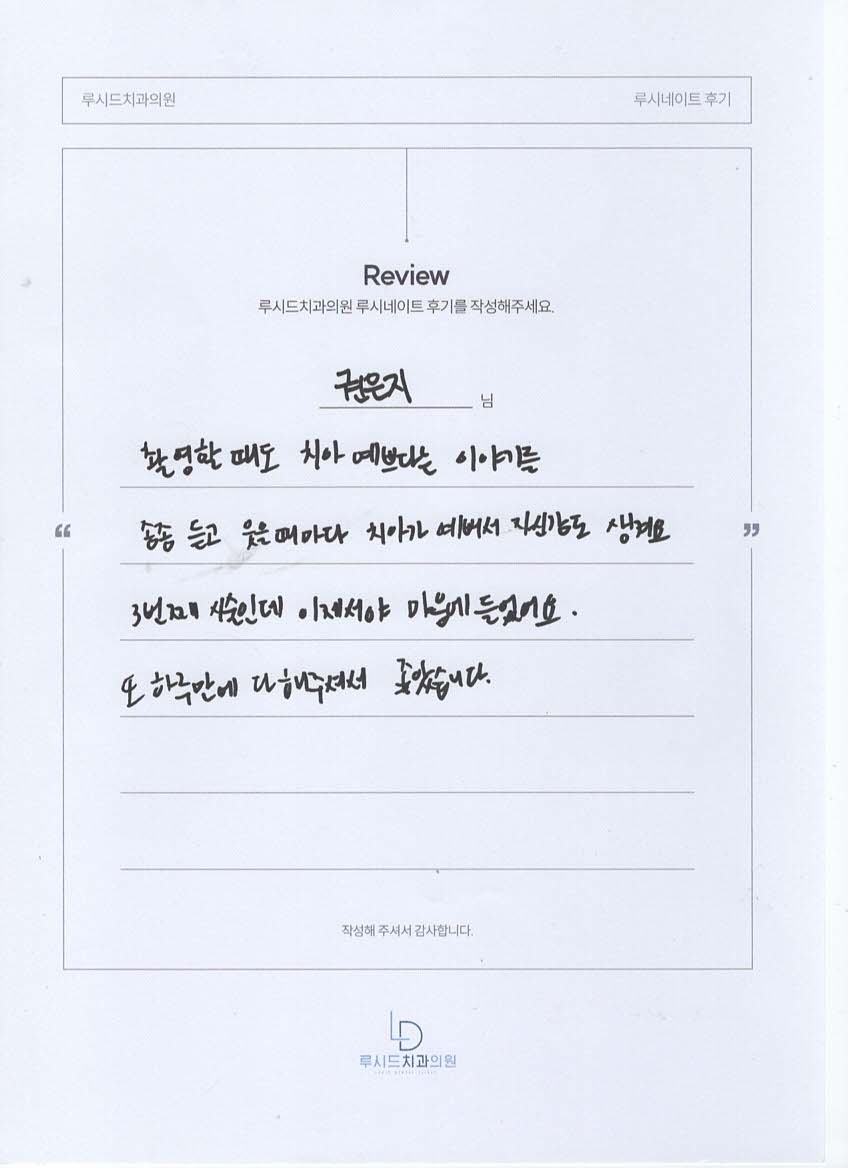 루시드치과의원 루시네이트 후기
Review
루시드치과의원 루시네이트 후기를 작성해주세요.
권은지 님
촬영할 때도 치아 예쁘다는 이야기를
“ 종종 듣고 웃을때마다 치아가 예뻐서 자신감도 생겨요 ”
3번째 시술인데 이제서야 마음에 들었어요.
또 하루만에 다 해주셔서 좋았습니다.
작성해 주셔서 감사합니다.
LD
루시드치과의원
LUCID DENTAL CLINIC